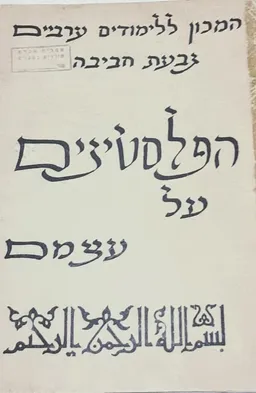 המכון ללימודים ערביים
גבעת חביבה
הפלסטינים
על
עצמם
بسم الله الرحمن الرحيم